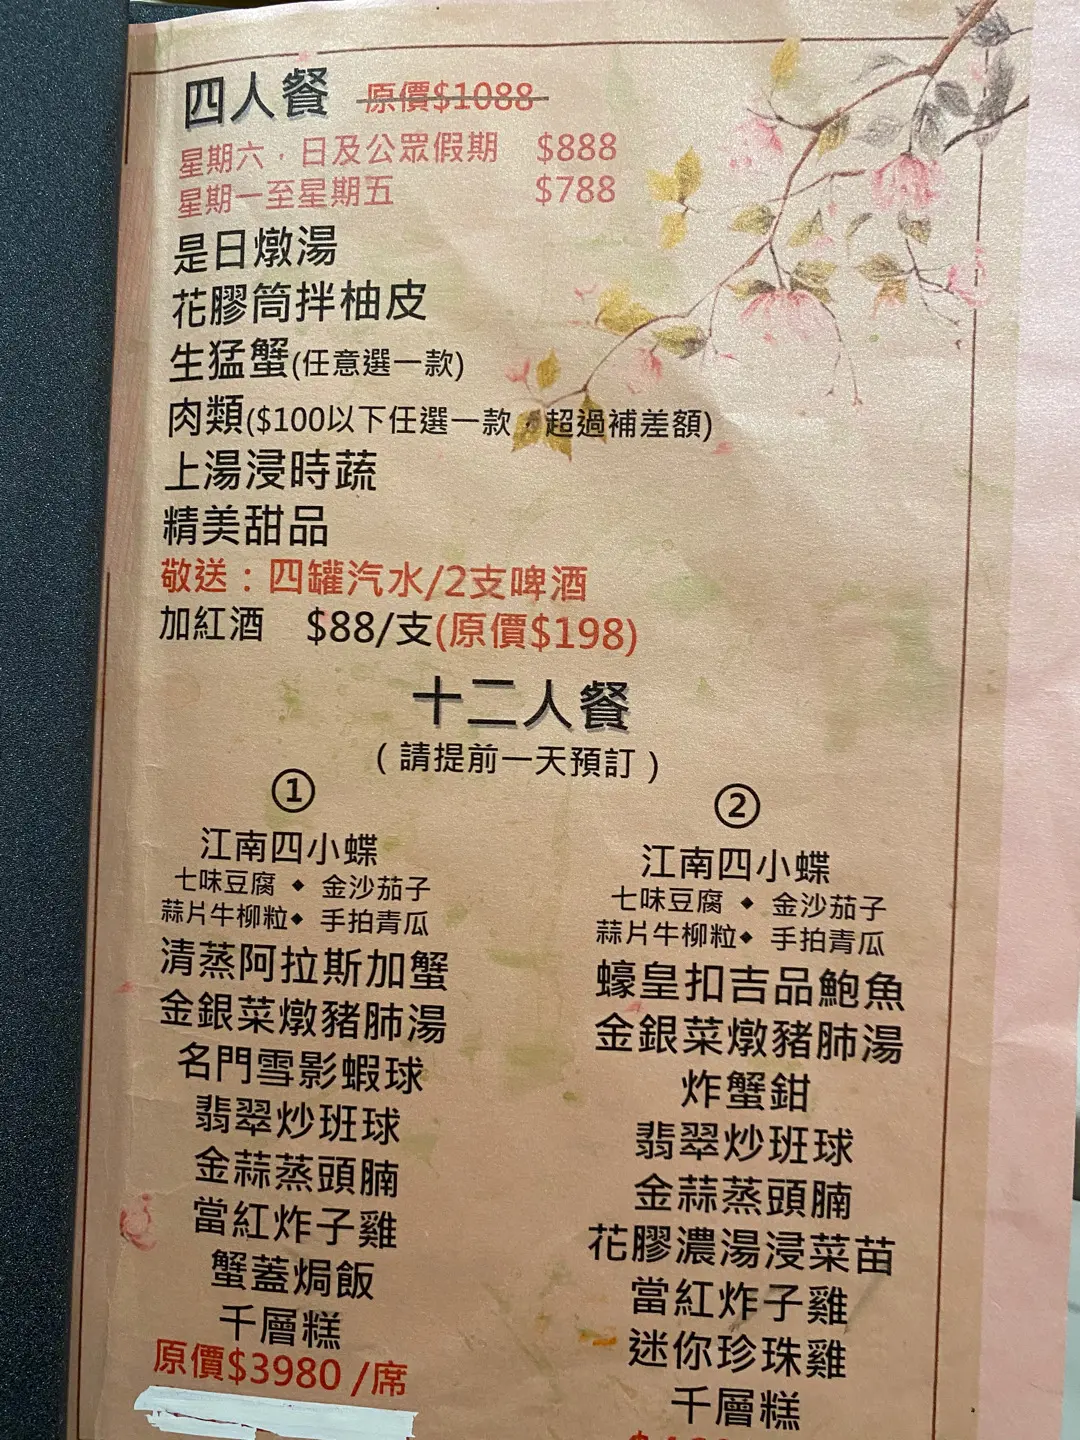 四人餐 原價$1088
星期六，日及公眾假期 $888
星期一至星期五 $788
是日燉湯
花膠筒拌柚皮
生猛蟹(任意選一款)
肉類($100以下任選一款，超過補差額)
上湯浸時蔬
精美甜品
敬送：四罐汽水/2支啤酒
加紅酒 $88/支(原價$198)
十二人餐
(請提前一天預訂)
①
江南四小蝶
七味豆腐 ◆ 金沙茄子
蒜片牛柳粒◆ 手拍青瓜
清蒸阿拉斯加蟹
金銀菜燉豬肺湯
名門雪影蝦球
翡翠炒班球
金蒜蒸頭腩
當紅炸子雞
蟹蓋焗飯
千層糕
原價$3980 /席
②
江南四小蝶
七味豆腐 ◆ 金沙茄子
蒜片牛柳粒◆ 手拍青瓜
蠔皇扣吉品鮑魚
金銀菜燉豬肺湯
炸蟹鉗
翡翠炒班球
金蒜蒸頭腩
花膠濃湯浸菜苗
當紅炸子雞
迷你珍珠雞
千層糕